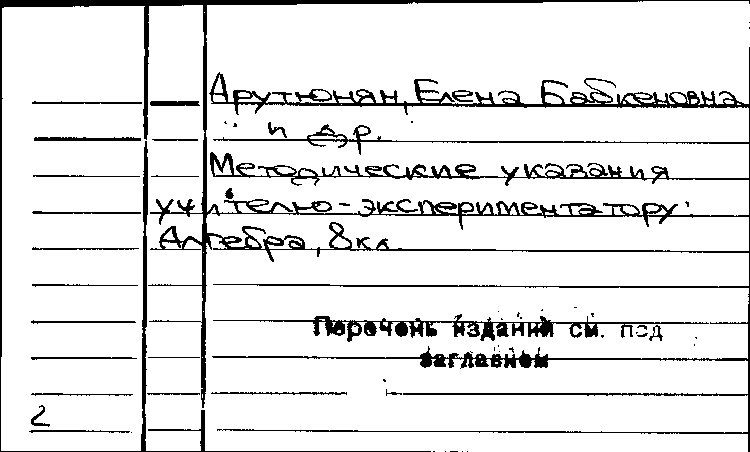 Арутюнян, Елена Бабкеновна
и др.
Методические указания
учителю-экспериментатору:
Алгебра, 8кл.
Перечень изданий см. под
заглавием
2